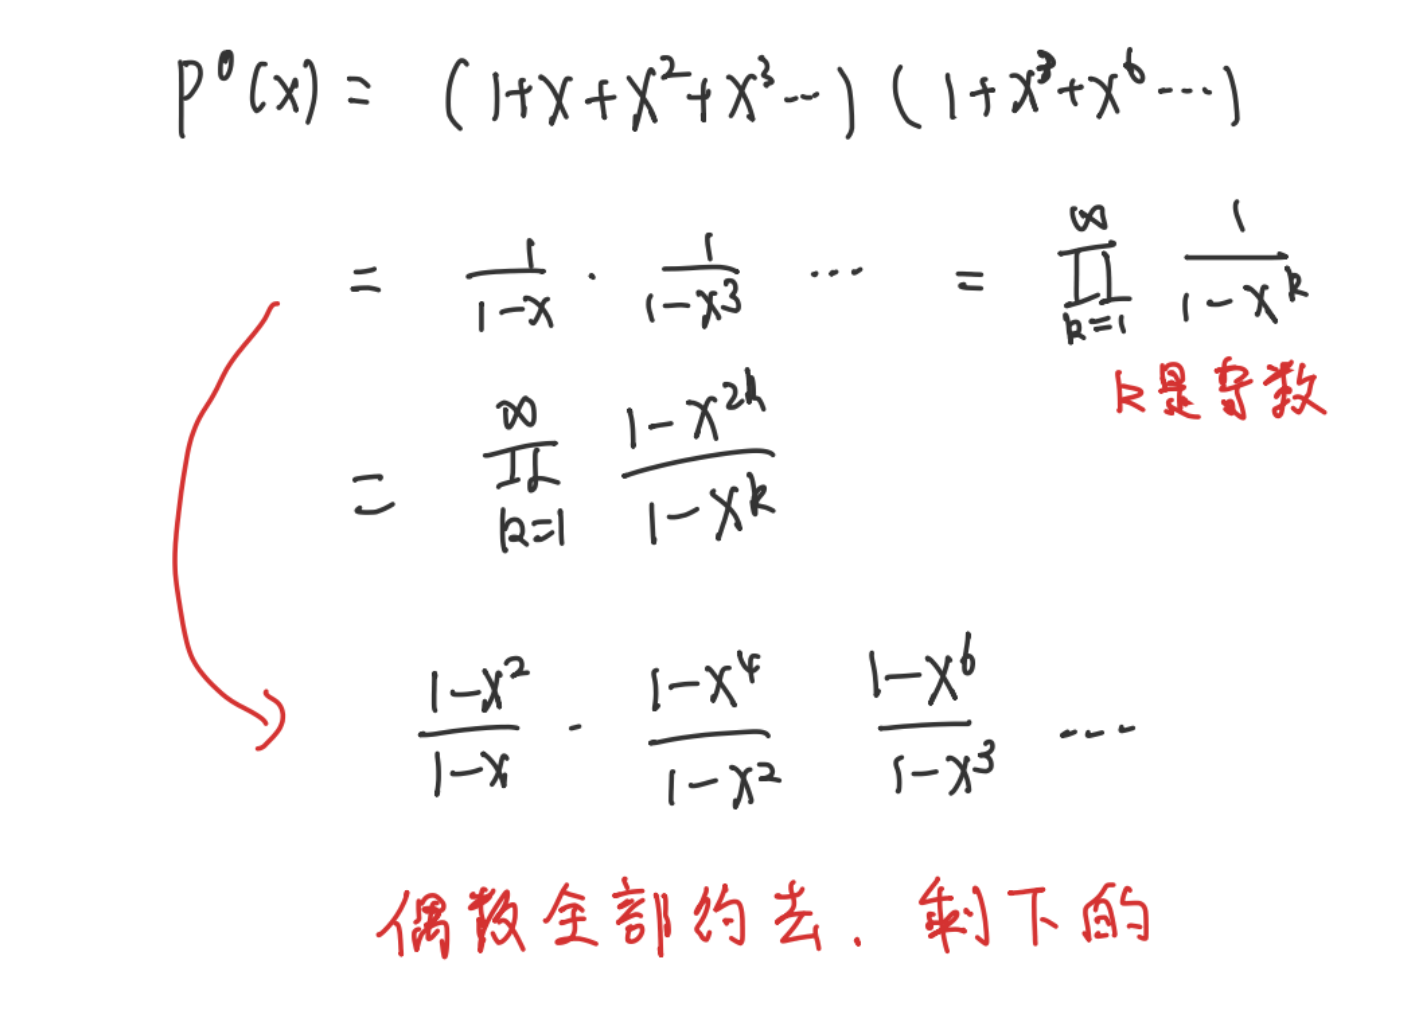 P⁰(x) = (1+x+x²+x³…)(1+x³+x⁶…)
= 1/(1-x) · 1/(1-x³) … = ∏_{k=1}^{∞} 1/(1-x^k)
k是导数
= ∏_{k=1}^{∞} (1-x^{2k})/(1-x^k)
(1-x²)/(1-x) · (1-x⁴)/(1-x²) (1-x⁶)/(1-x³) …
偶数全部约去. 剩下的